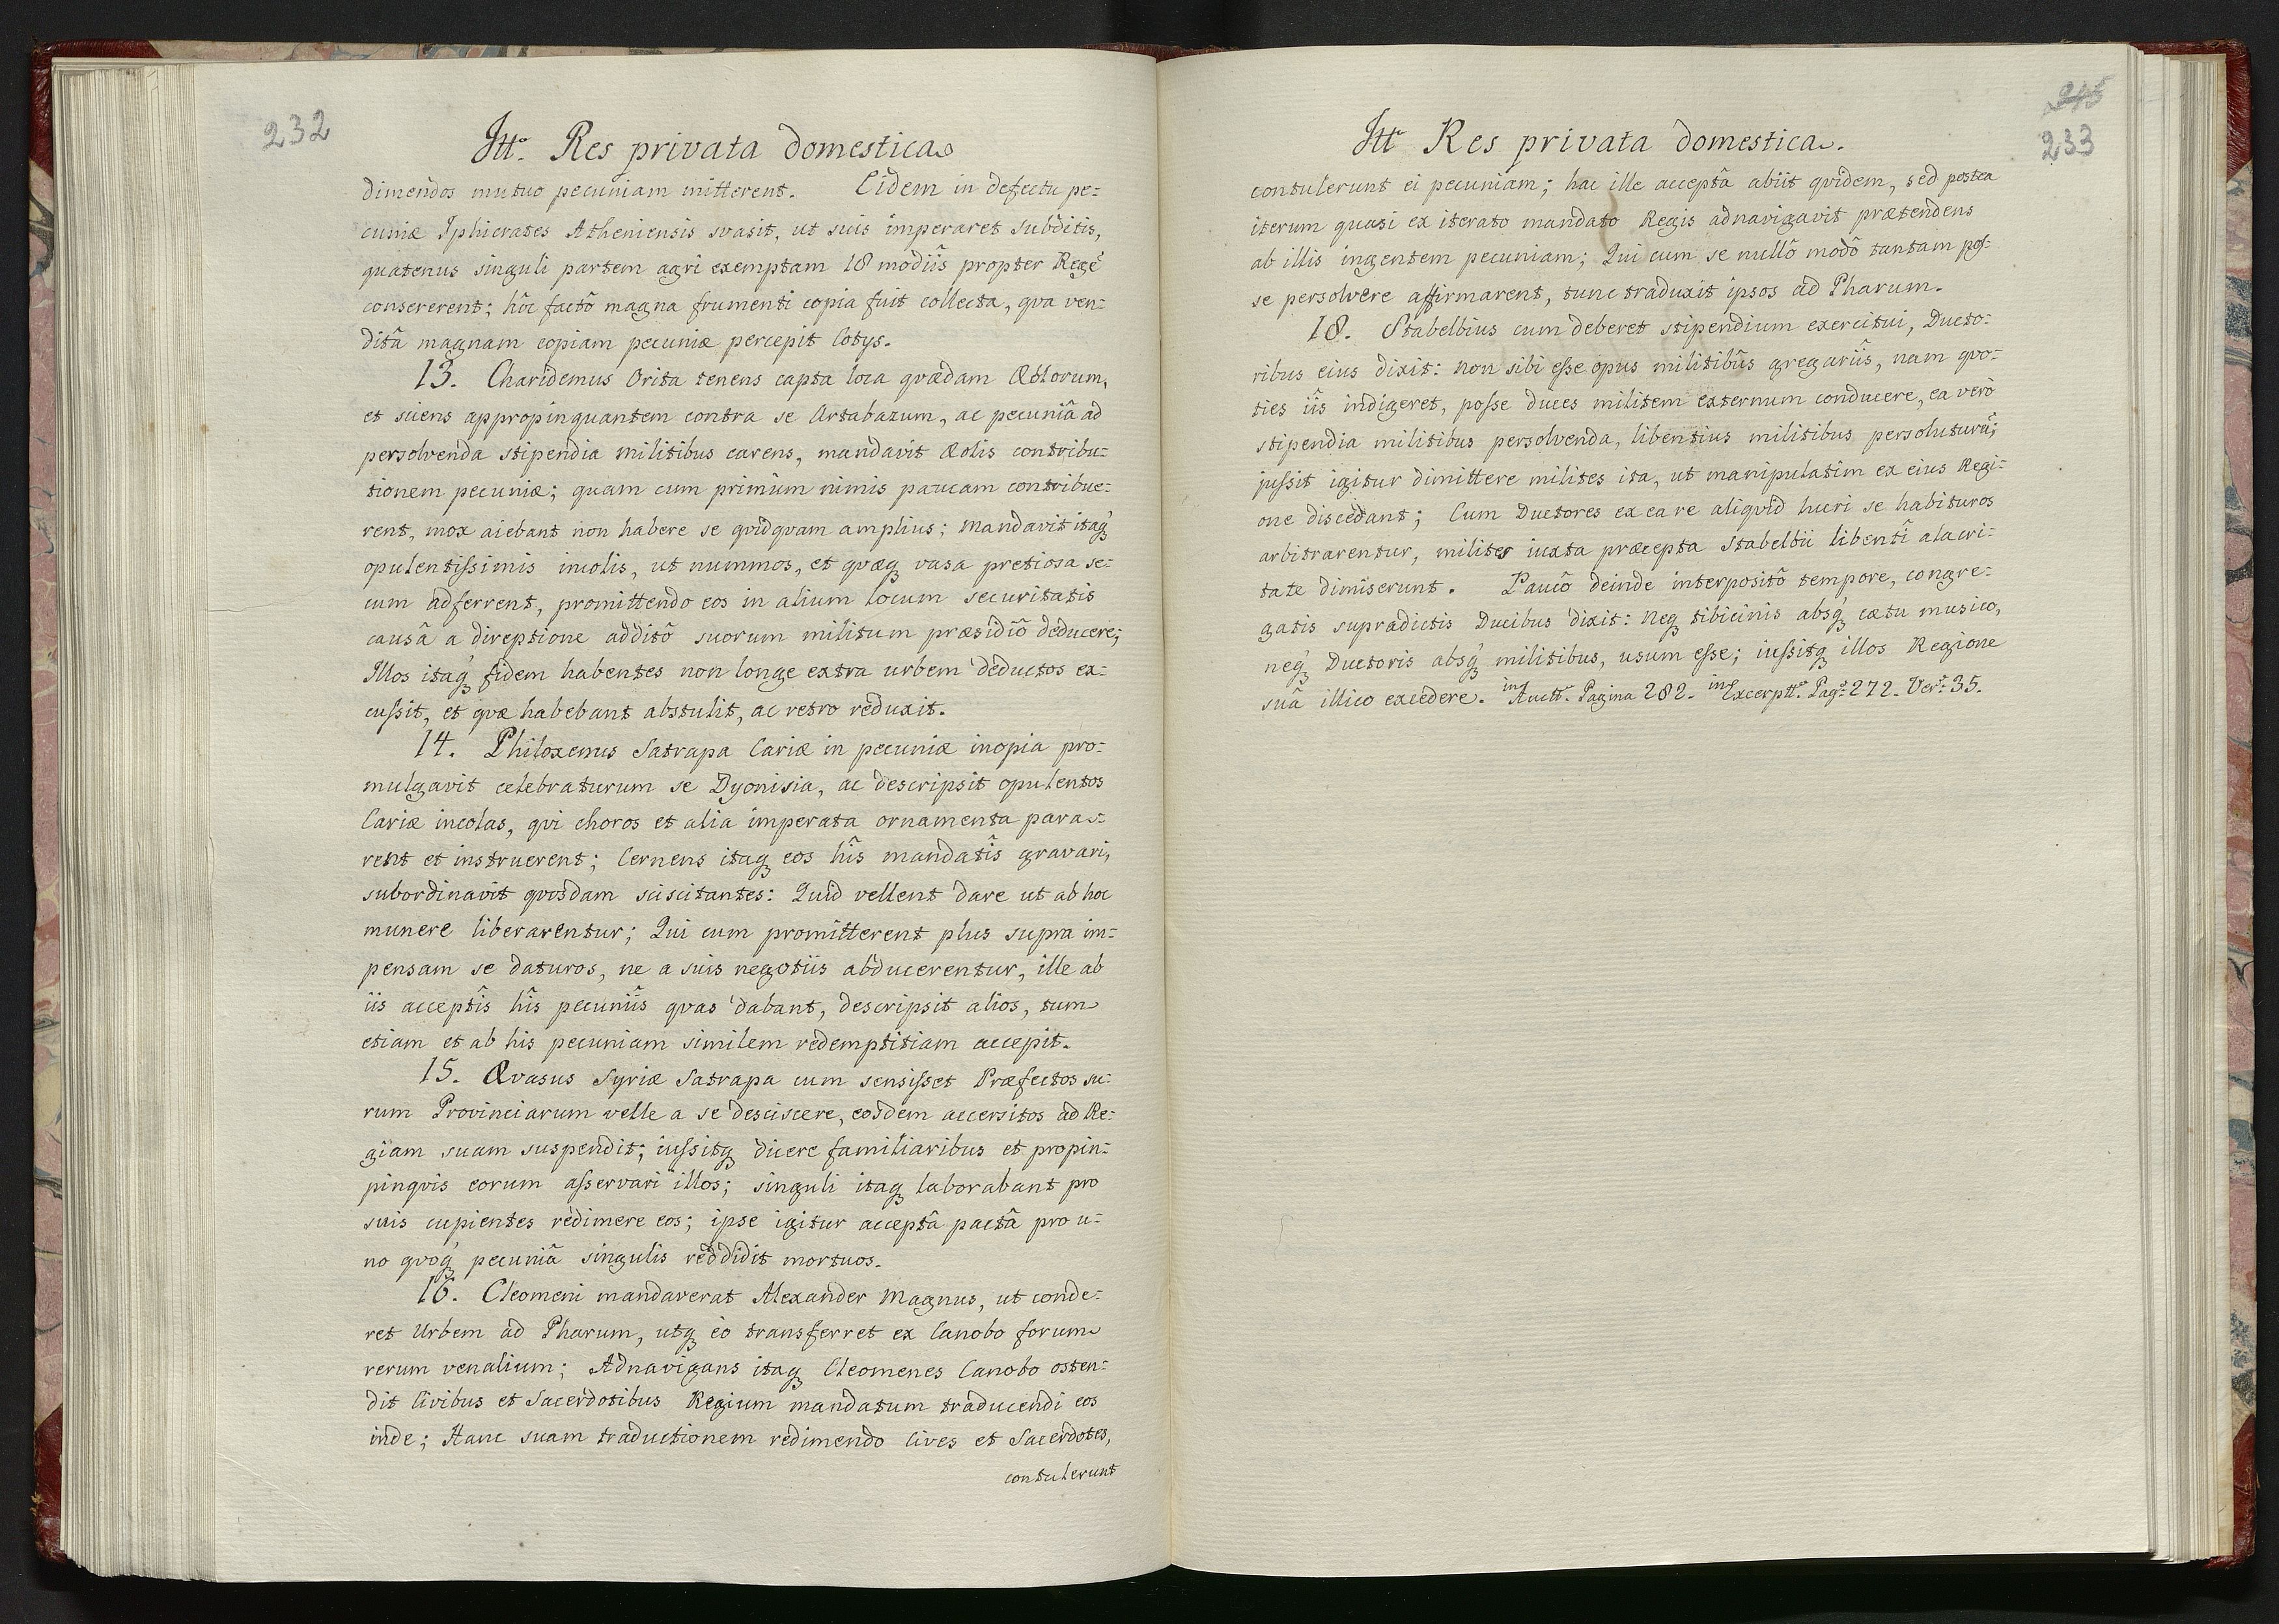 232
Itt.º Res privata domestica
dimendos mutuo pecuniam mitterent. Eidem in defectu pe:
cuniæ Iphicrates Atheniensis svasit, ut suis imperaret subditis,
quatenus singuli partem agri exemptam 18 modiis propter Regẽ
consererent; hôc factô magna frumenti copia fuit collecta, qva ven:
ditâ magnam copiam pecuniæ percepit Cotys.
13. Charidemus Orita tenens capta loca qvædam Æolorum,
et sciens appropinquantem contra se Artabazum, ac pecuniâ ad
persolvenda stipendia militibus carens, mandavit Æolis contribu:
tionem pecuniæ; quam cum primùm nimis paucam contribue:
rent, mox aiebant non habere se qvidqvam amplius; mandavit itaq́ꝫ
opulentißimis incolis, ut nummos, et qvæqꝫ vasa pretiosa se:
cum adferrent, promittendo eos in alium locum securitatis
causâ a direptione additô suorum militum præsidiô deducere;
Illos itaq́ꝫ fidem habentes non longe extra urbem deductos ex:
cußit, et qvæ habebant abstulit, ac retro reduxit.
14. Philoxenus Satrapa Cariæ in pecuniæ inopia pro:
mulgavit celebraturum se Dyonisia, ac descripsit opulentos
Cariæ incolas, qvi choros et alia imperata ornamenta para:
rent et instruerent; Cernens itaqꝫ eos hîs mandatîs gravari,
subordinavit qvosdam sciscitantes: Quid vellent dare ut ab hoc
munere liberarentur; Qui cum promitterent plus supra im:
pensam se daturos, ne a suis negotiis abducerentur, ille ab
iis acceptîs hîs pecuniîs qvas dabant, descripsit alios, tum
etiam et ab his pecuniam similem redemptitiam accepit.
15. Ævasus Syriæ Satrapa cum sensißet Præfectos su:
rum Provinciarum velle a se desciscere, eosdem accersitos ad Re:
giam suam suspendit; iußitqꝫ dicere familiaribus et propin:
pinqvis eorum aßervari illos; singuli itaqꝫ laborabant pro
suis cupientes redimere eos; ipse igitur acceptâ pactâ pro u:
no qvoq́ꝫ pecuniâ singulis reddidit mortuos.
16. Cleomeni mandaverat Alexander Magnus, ut conde:
ret Urbem ad Pharum, utqꝫ eo transferret ex Canobo forum
rerum venalium; Adnavigans itaqꝫ Cleomenes Canobo osten:
dit Civibus et Sacerdotibus Regium mandatum traducendi eos
inde; Hanc suam traductionem redimendo Cives et Sacerdotes,
contulerunt
233
Itt.º Res privata domestica.
contulerunt ei pecuniam; hac ille acceptâ abiit qvidem, sed postea
iterum quasi ex iterato mandato Regis adnavigavit prætendens
ab illis ingentem pecuniam; Qui cum se nullô modô tantam poſ:
se persolvere affirmarent, tunc traduxit ipsos ad Pharum.
18. Stabelbius cum deberet stipendium exercitui, Ducto:
ribus eius dixit: non sibi eße opus militibûs gregariîs, nam qvo:
ties iîs indigeret, poße duces militem externum conducere, ea verò
stipendia militibus persolvenda, libentius militibus persoluturũ;
jußit igitur dimittere milites ita, ut manipulatim ex eius Regi:
one discedant; Cum Ductores ex ea re aliqvid lucri se habituros
arbitrarentur, milites iuxta præcepta Stabelbii libentî alacri:
tate dimiserunt. Paucô deinde interpositô tempore, congre:
gatis supradictis Ducibus dixit: neqꝫ tibicinis absq́ꝫ cætu musico,
neq́ꝫ Ductoris absq́ꝫ militibus, usum eße; iußitqꝫ illos Regione
suâ illico excedere. in Auctt.º Pagina 282. in Excerptt.º Pag.ª 272. Ver.º 35.